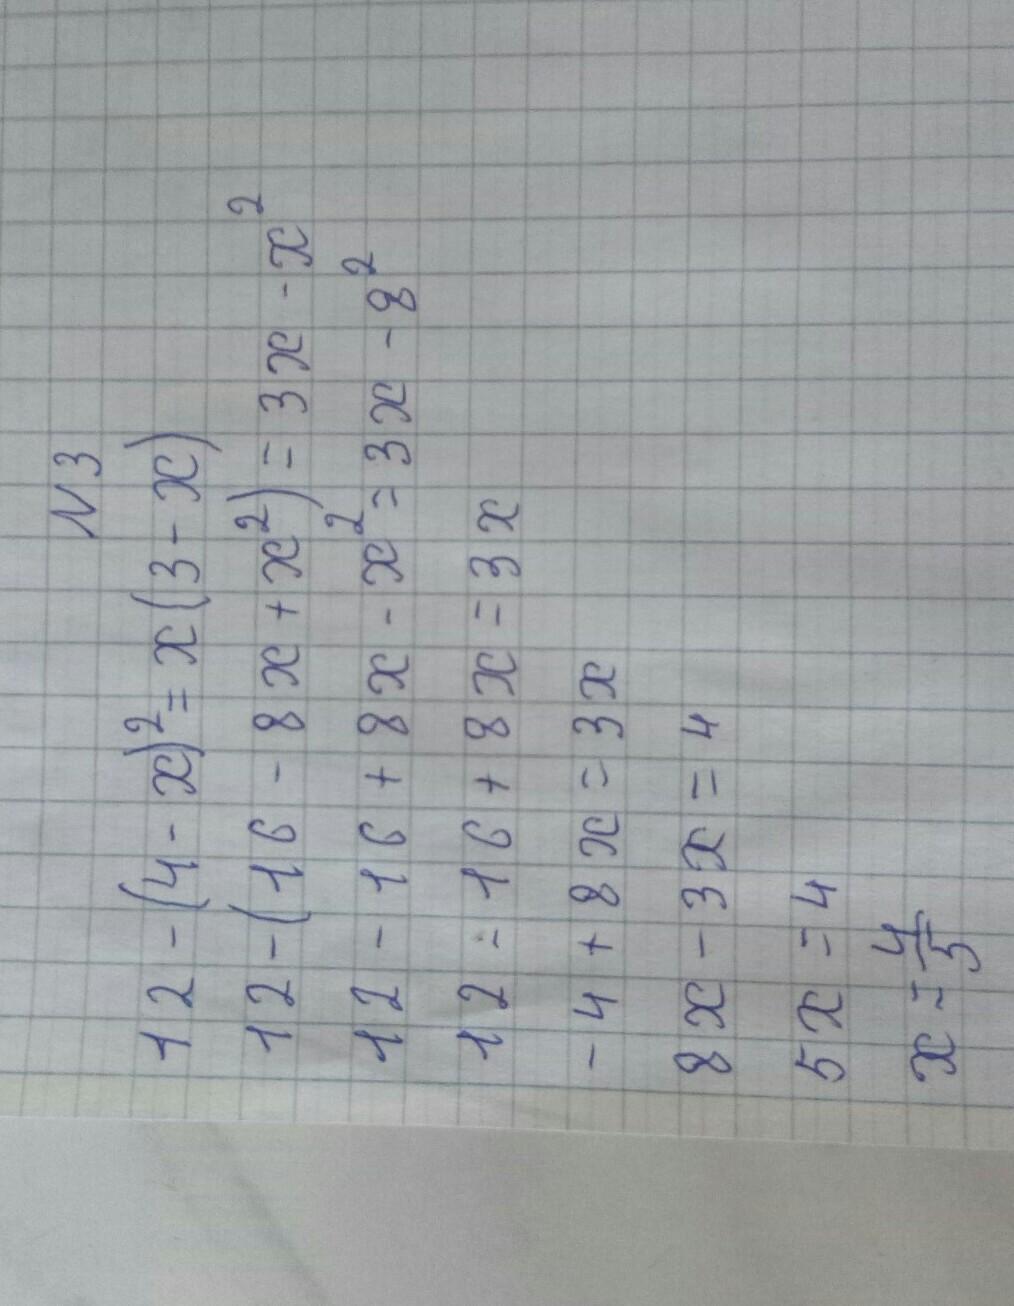 N 3
12 - (4 - x)² = x(3 - x)
12 - (16 - 8x + x²) = 3x - x²
12 - 16 + 8x - x² = 3x - 8²
12 - 16 + 8x = 3x
- 4 + 8x = 3x
8x - 3x = 4
5x = 4
x = 4/5